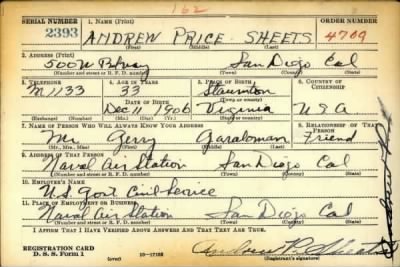 162
SERIAL NUMBER 1. NAME (Print) ORDER NUMBER
2393 ANDREW PRICE SHEETS 4709
(First) (Middle) (Last)
2. ADDRESS (Print)
500 W San Diego Cal
(Number and street or R. F. D. number) (Town) (County) (State)
3. TELEPHONE 4. AGE IN YEARS 5. PLACE OF BIRTH 6. COUNTRY OF CITIZENSHIP
M 1133 33 Staunton
DATE OF BIRTH (Town or county)
Dec 11 1906 Virginia U S A
(Mo.) (Day) (Yr.) (State or country)
7. NAME OF PERSON WHO WILL ALWAYS KNOW YOUR ADDRESS 8. RELATIONSHIP OF THAT PERSON
Mr Gerry Friend
(Mr., Mrs., Miss) (First) (Middle) (Last)
9. ADDRESS OF THAT PERSON
Naval Air Station San Diego Cal
(Number and street or R. F. D. number) (Town) (County) (State)
10. EMPLOYER'S NAME
U.S. Govt Civil Service
11. PLACE OF EMPLOYMENT OR BUSINESS
Naval Air Station San Diego Cal
(Number and street or R. F. D. number) (Town) (County) (State)
I AFFIRM THAT I HAVE VERIFIED ABOVE ANSWERS AND THAT THEY ARE TRUE.
REGISTRATION CARD
D. S. S. FORM 1 (over) 16-17105 Andrew P. Sheets
(Registrant's signature)